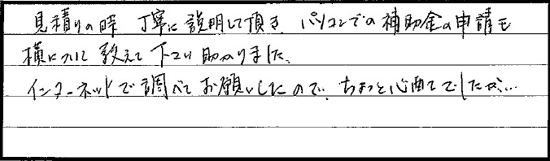 見積りの時 丁寧に説明して頂き、パソコンでの補助金の申請も
横について教えて下さり助かりました。
インターネットで調べてお願いしたので、ちょっと心配でしたが…